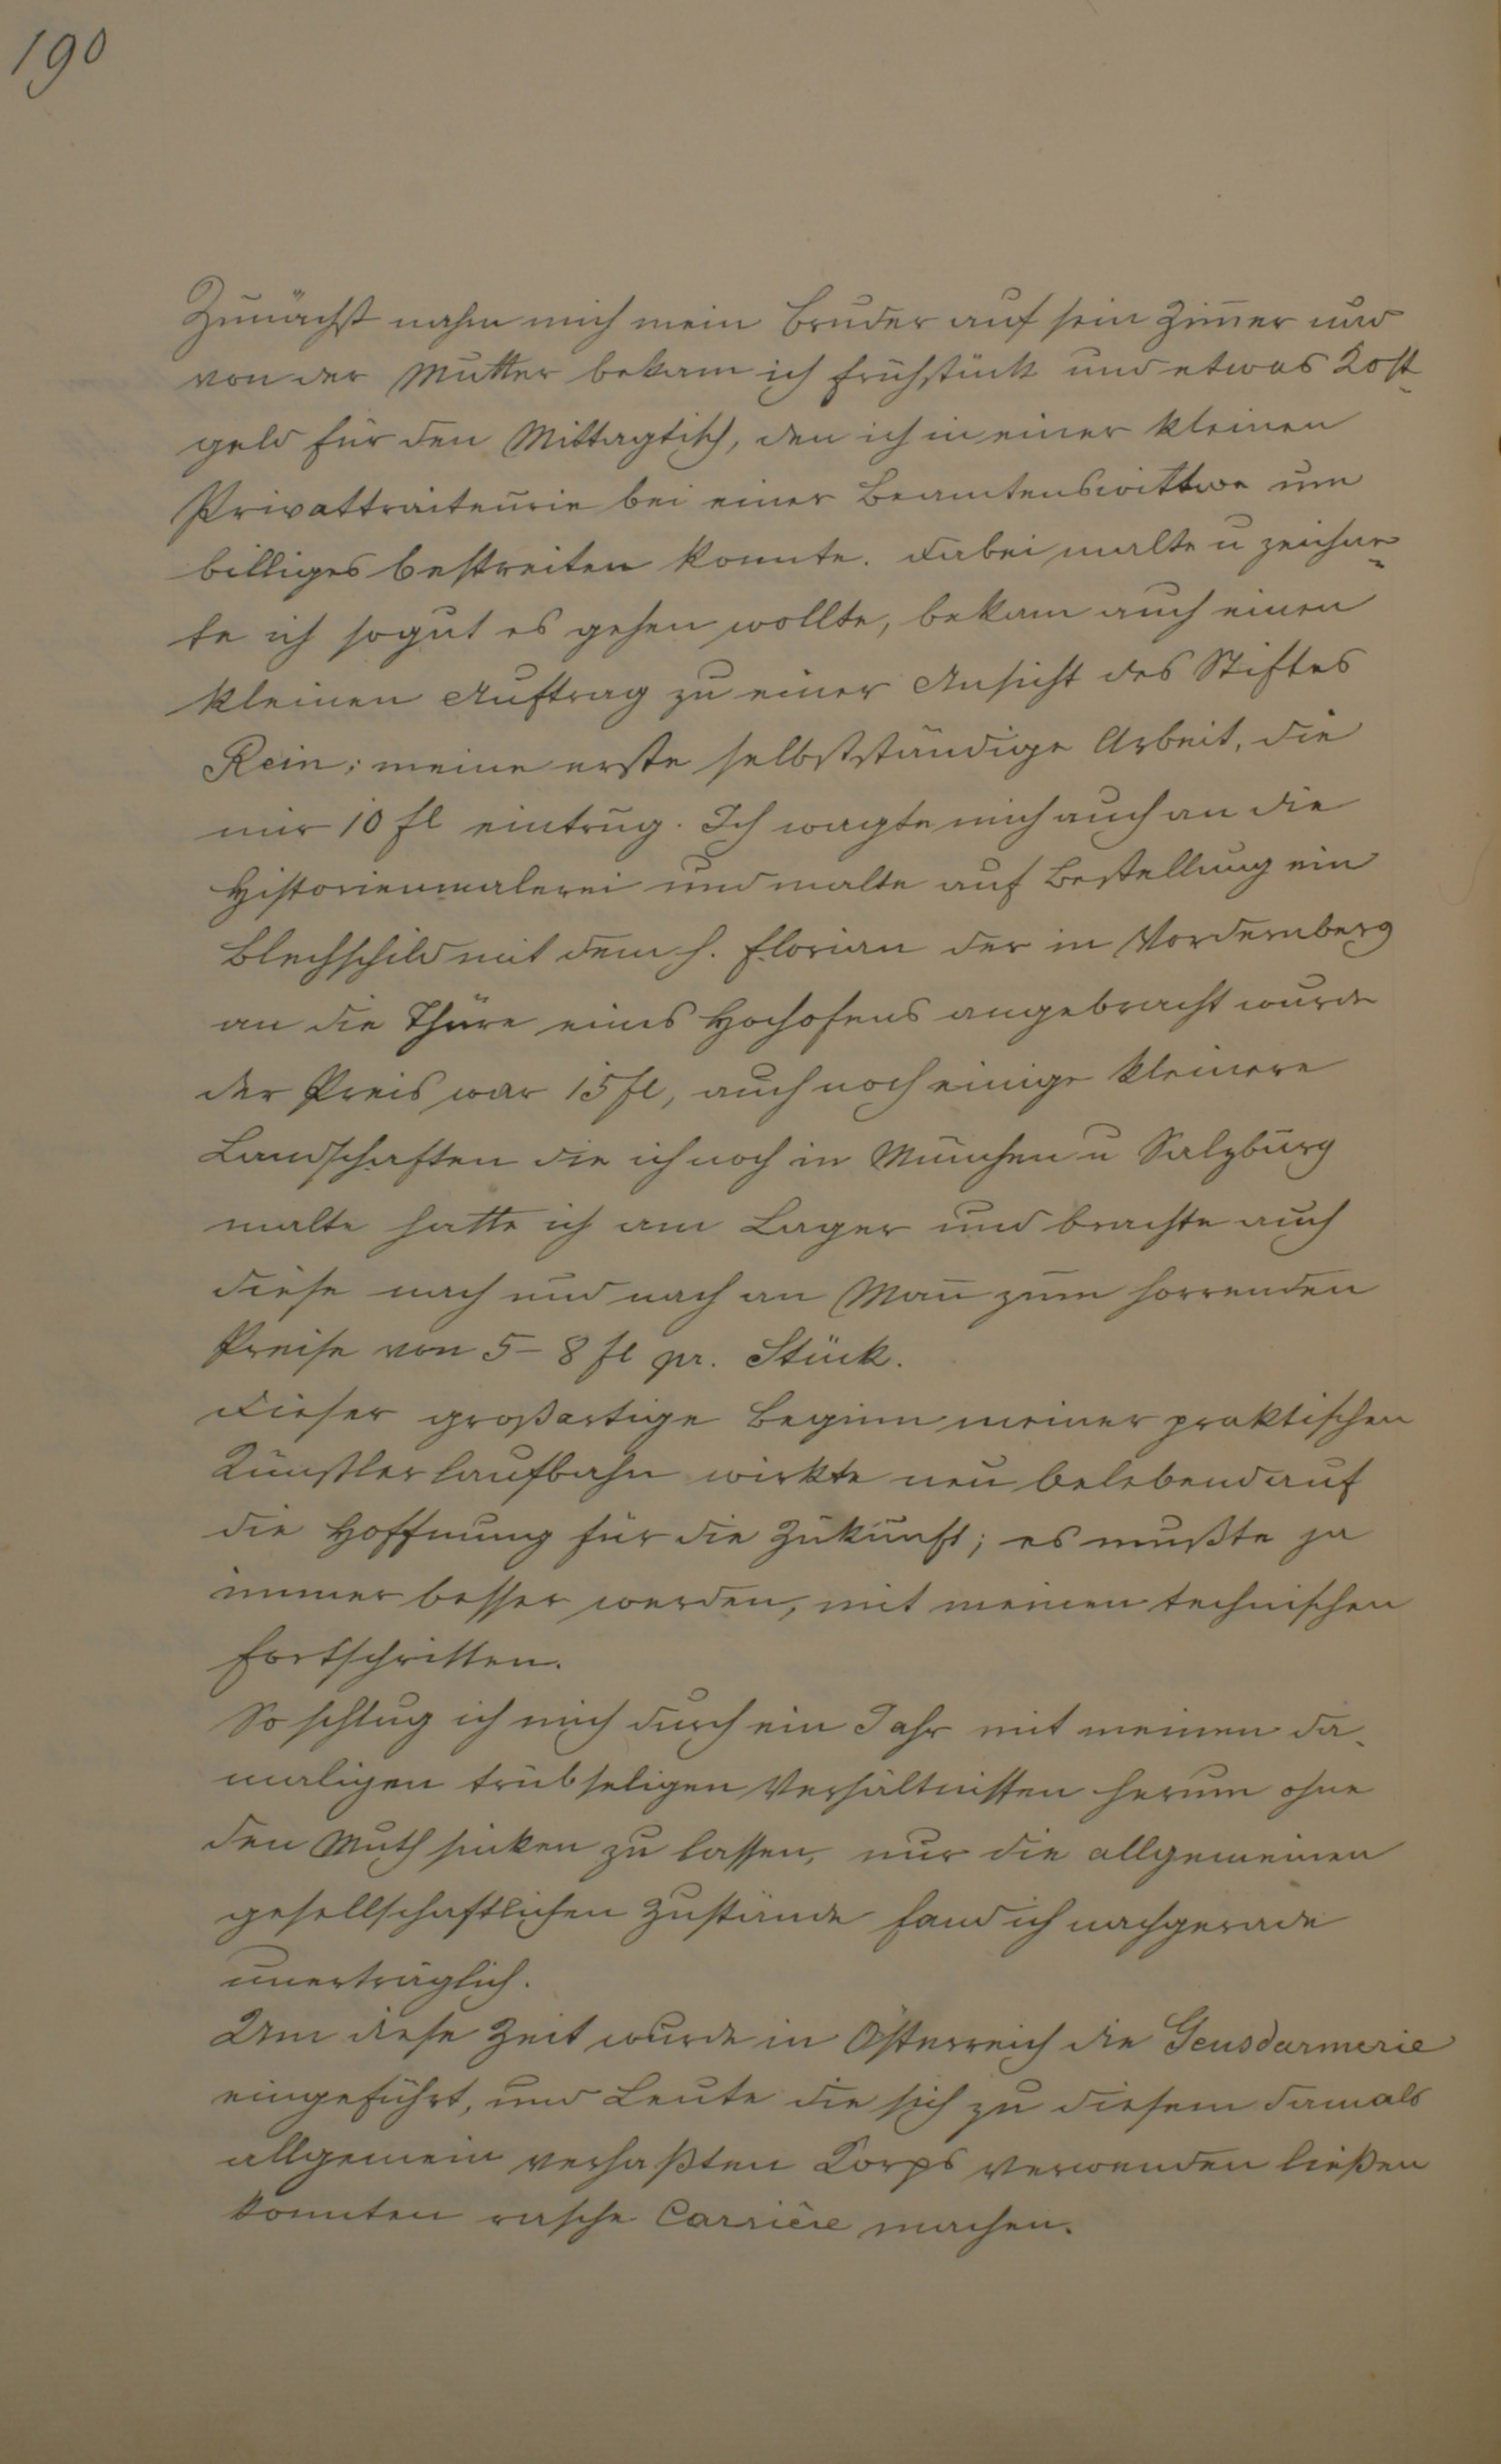 190
Zunächst nahm mich mein Bruder auf sein Zim̅er und
von der Mutter bekam ich Frühstück und etwas Kost-
geld für den Mittagtisch, den ich in einer kleinen
Privattraiteurie bei einer Beamtenswittwe um
billiges bestreiten konnte. Dabei malte u zeichne=
te ich sogut es gehen wollte, bekam auch einen
kleinen Auftrag zu einer Ansicht des Stiftes
Rein; meine erste selbstständige Arbeit, die
mir 10 fl eintrug. Ich wagte mich auch an die
Historienmalerei und malte auf Bestellung ein
Blechschild mit dem h. Florian der in Vordernberg
an die Thüre eines Hochofens angebracht wurde
der Preis war 15 fl, auch noch einige kleinere
Landschaften die ich noch in München u Salzburg
malte hatte ich am Lager und brachte auch
diese nach und nach an Man̅ zum horrenden
Preise von 5–8 fl pr. Stück.
Dieser großartige Beginn meiner praktischen
Künstlerlaufbahn wirkte neu belebend auf
die Hoffnung für die Zukunft; es mußte ja
immer besser werden, mit meinen technischen
Fortschritten.
So schlug ich mich durch ein Jahr mit meinen da-
maligen trübseligen Verhältnissen herum ohne
den Muth sinken zu lassen, nur die allgemeinen
gesellschaftlichen Zustände fand ich nachgerade
unerträglich.
Um diese Zeit wurde in Österreich die Gensdarmerie
eingeführt, und Leute die sich zu diesem damals
allgemein verhaßten Corps verwenden ließen
konnten rasche Carrière machen.